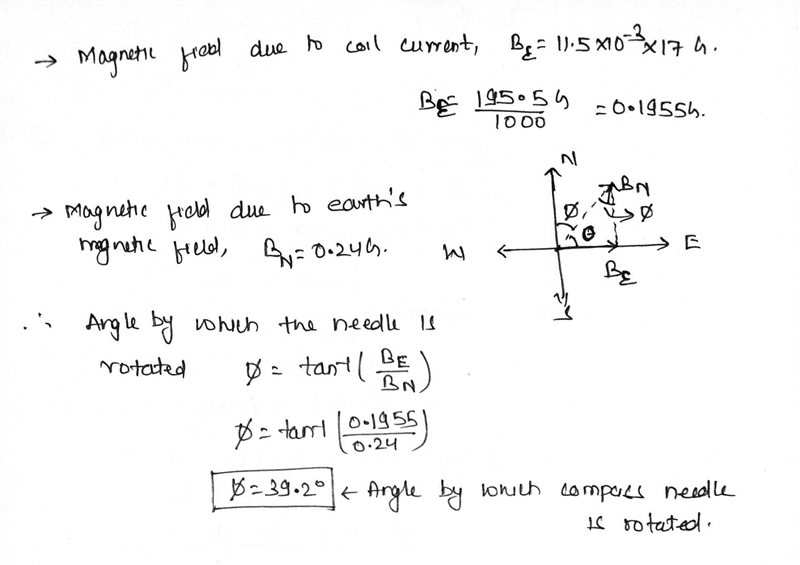 → Magnetic field due to coil current, B_E = 11.5 × 10⁻³ × 17 G.
B_E = 195.5 G / 1000 = 0.1955 G.
N
B_N
→ Magnetic field due to earth's
Ø
→ Ø
mgnetic field, B_N = 0.24 G.
W
θ
E
B_E
S
∴ Angle by which the needle is
rotated Ø = tan⁻¹ (B_E / B_N)
Ø = tan⁻¹ (0.1955 / 0.24)
Ø = 39.2° ← Angle by which compass needle
is rotated.